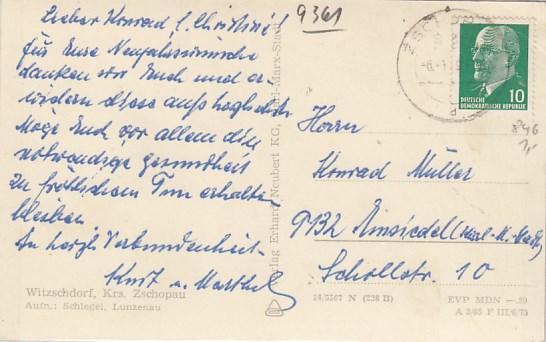 Lieber Konrad u. Christine!
für Eure Neujahrswünsche
danken wir Euch und er-
widern diese aufs herzlichste
Möge Euch vor allem die
notwendige Gesundheit
zu fröhlichem Tun erhalten
bleiben
In herzl. Verbundenheit
Kurt u. Martha
Witzschdorf, Krs. Zschopau
Aufn.: Schlegel, Lunzenau
Verlag Erhard Neubert KG, Karl-Marx-Stadt
9361
ZSC
DEUTSCHE
DEMOKRATISCHE REPUBLIK
10
Herrn
Konrad Müller
9132 Einsiedel (Karl-M.-Stadt)
Schulstr. 10
14/5567 N (238 B)
EVP MDN —.20
A 2/65 P III/6/75